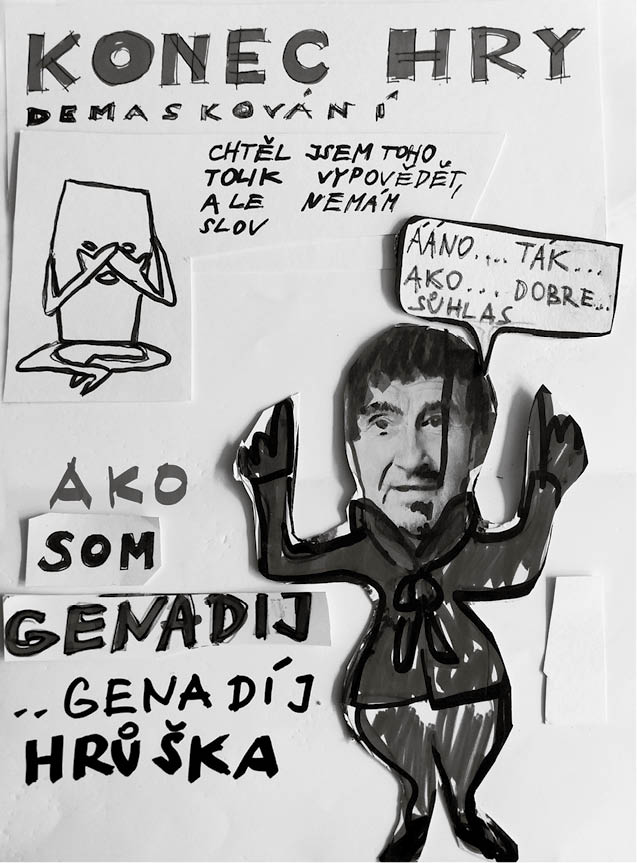 KONEC HRY
DEMASKOVÁNÍ
CHTĚL JSEM TOHO
TOLIK VYPOVĚDĚT,
ALE NEMÁM
SLOV
ÁÁNO.... TÁK...
AKO... DOBRE...
SŮHLAS
AKO
SOM
GENADIJ
..GENADÍJ
HRŮŠKA